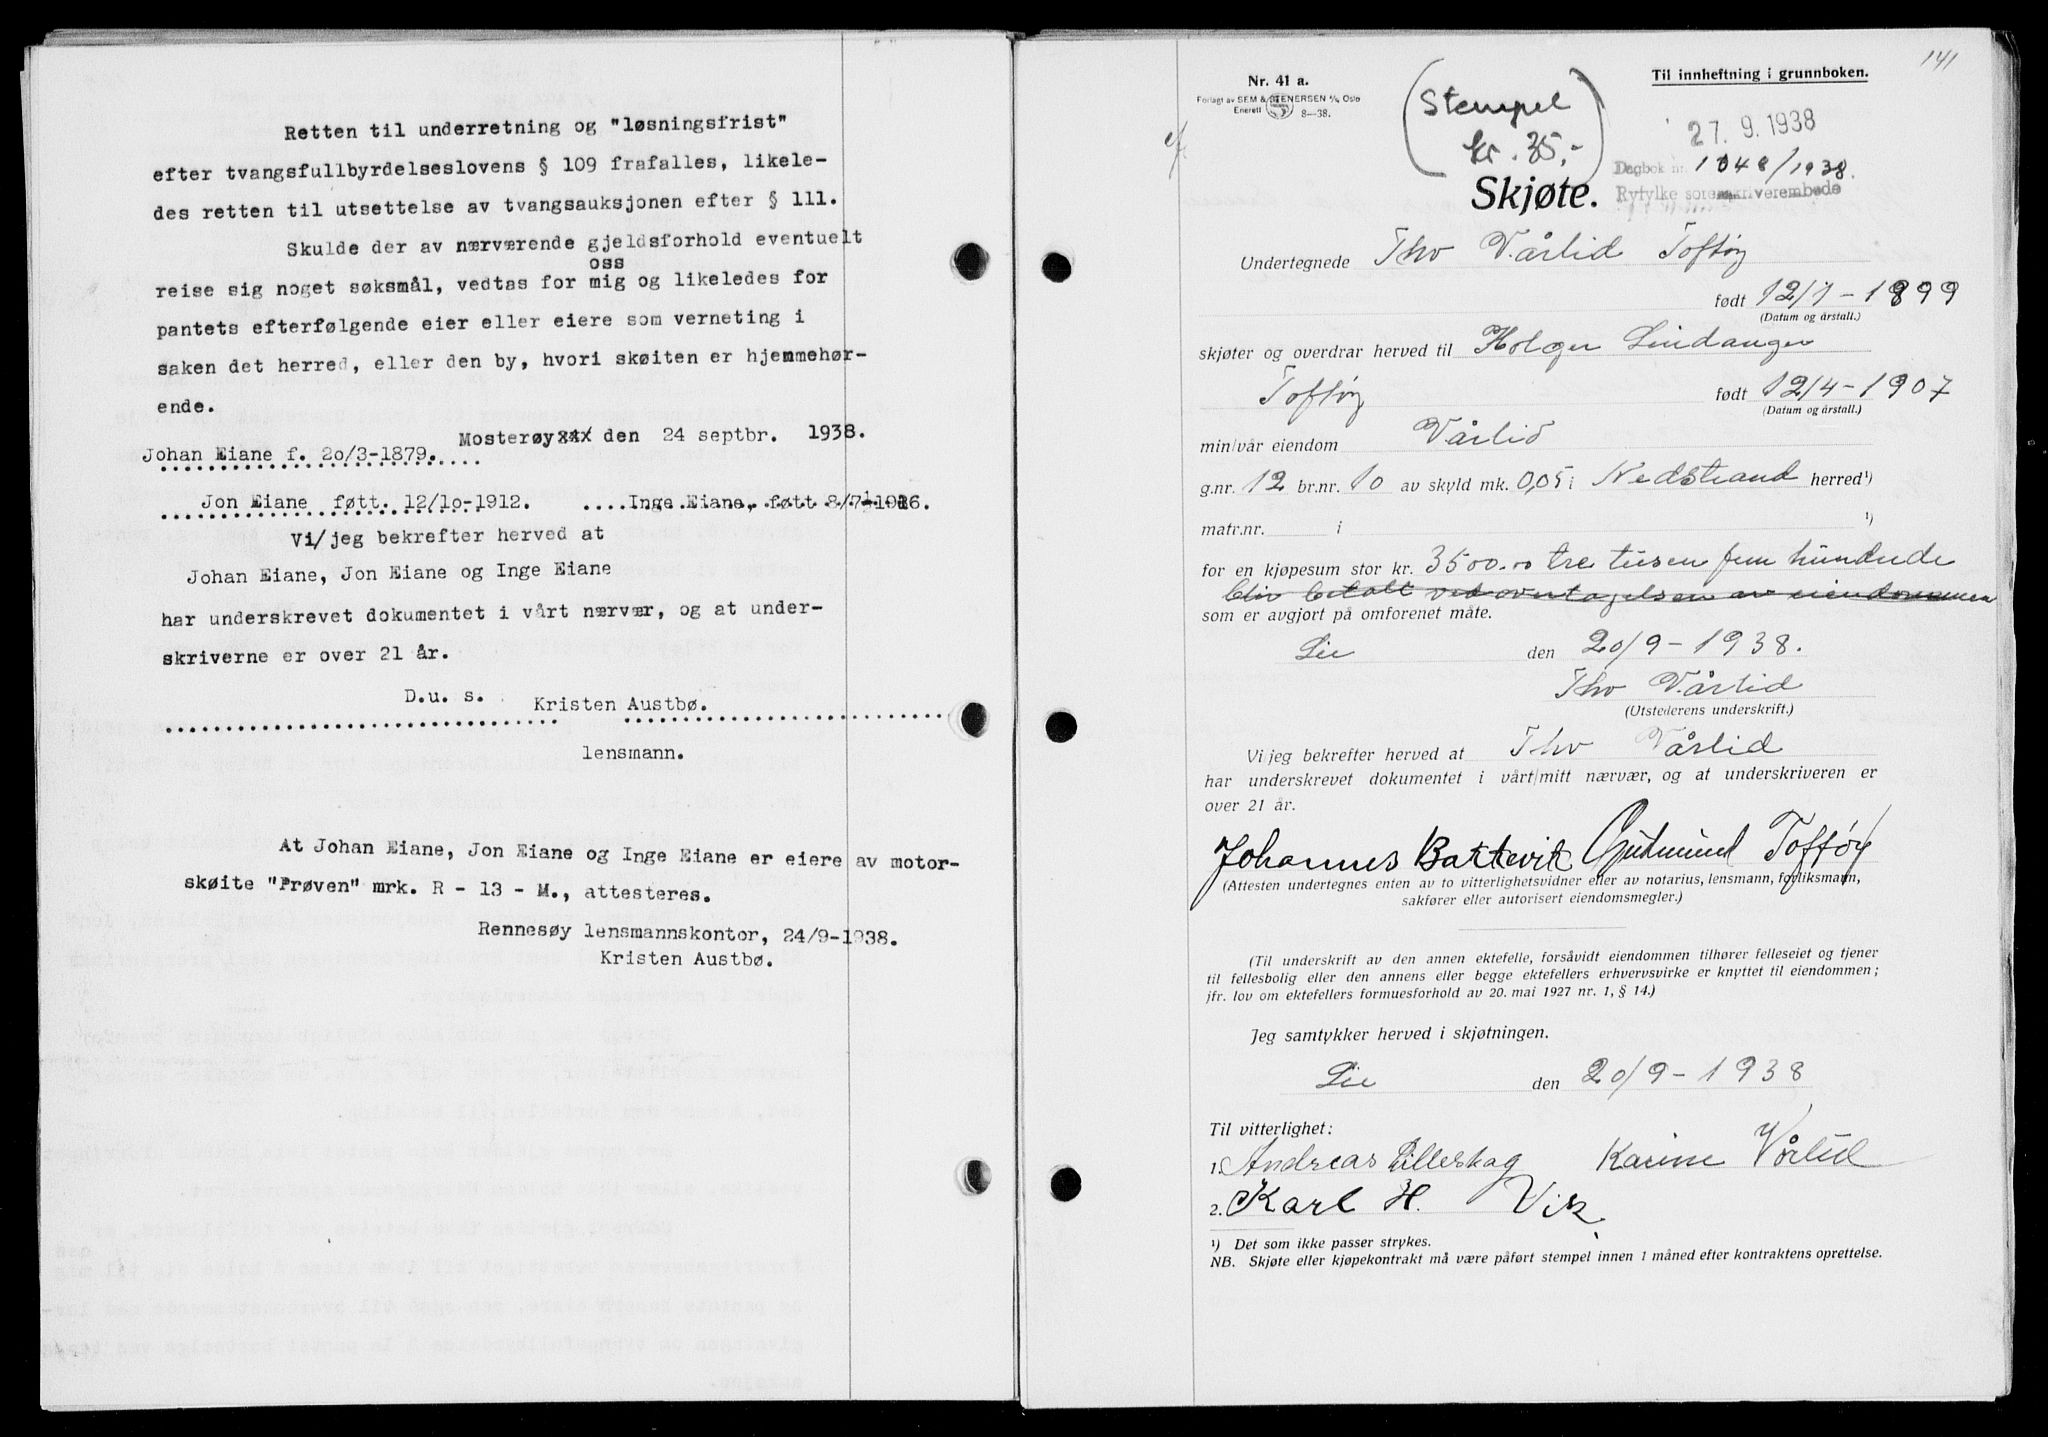 Retten til underretning og "løsningsfrist"
efter tvangsfullbyrdelseslovens § 109 frafalles, likele-
des retten til utsettelse av tvangsauksjonen efter § 111.
Skulde der av nærværende gjeldsforhold eventuelt
oss
reise sig noget søksmål, vedtas for mig og likeledes for
pantets efterfølgende eier eller eiere som verneting i
saken det herred, eller den by, hvori skøiten er hjemmehør-
ende.
Mosterøy den 24 septbr. 1938.
Johan Eiane f. 2o/3-1879.
Jon Eiane føtt. 12/1o-1912. Inge Eiane, føtt 8/7-1916.
Vi/jeg bekrefter herved at
Johan Eiane, Jon Eiane og Inge Eiane
har underskrevet dokumentet i vårt nærvær, og at under-
skriverne er over 21 år.
D.u. s. Kristen Austbø.
lensmann.
At Johan Eiane, Jon Eiane og Inge Eiane er eiere av motor-
skøite "Prøven" mrk. R - 13 - M., attesteres.
Rennesøy lensmannskontor, 24/9-1938.
Kristen Austbø.
141
Nr. 41 a.
Forlagt av SEM & STENERSEN A/S, Oslo
Enerett 8-38.
(Stempel
kr. 35,-)
Til innheftning i grunnboken.
27. 9. 1938
Dagbok nr. 1048/1938.
Ryfylke sorenskriverembede
Skjøte.
Undertegnede Thv Vårlid Toftøy
født 12/1-1899
(Datum og årstall.)
skjøter og overdrar herved til Holger Lindanger
Toftøy født 12/4-1907
(Datum og årstall.)
min/vår eiendom Vårlid
g.nr. 12 br.nr. 10 av skyld mk. 0,05 i Nedstrand herred¹)
matr.nr. i ¹)
for en kjøpesum stor kr. 3500.00 tre tusen fem hundrede
bliv betalt ved overtagelsen av eiendommen
som er avgjort på omforenet måte.
Lie den 20/9-1938.
Thv Vårlid
(Utstederens underskrift.)
Vi jeg bekrefter herved at Thv Vårlid
har underskrevet dokumentet i vårt/mitt nærvær, og at underskriveren er
over 21 år.
Johannes Battevik Gudmund Toftøy
(Attesten undertegnes enten av to vitterlighetsvidner eller av notarius, lensmann, forliksmann,
sakfører eller autorisert eiendomsmegler.)
(Til underskrift av den annen ektefelle, forsåvidt eiendommen tilhører felleseiet og tjener
til fellesbolig eller den annens eller begge ektefellers erhvervsvirke er knyttet til eiendommen;
jfr. lov om ektefellers formuesforhold av 20. mai 1927 nr. 1, § 14.)
Jeg samtykker herved i skjøtningen.
Lie den 20/9-1938
Til vitterlighet:
1. Andreas Lilleskog Karine Vårlid
2. Karl H. Vik
¹) Det som ikke passer strykes.
NB. Skjøte eller kjøpekontrakt må være påført stempel innen 1 måned efter kontraktens oprettelse.